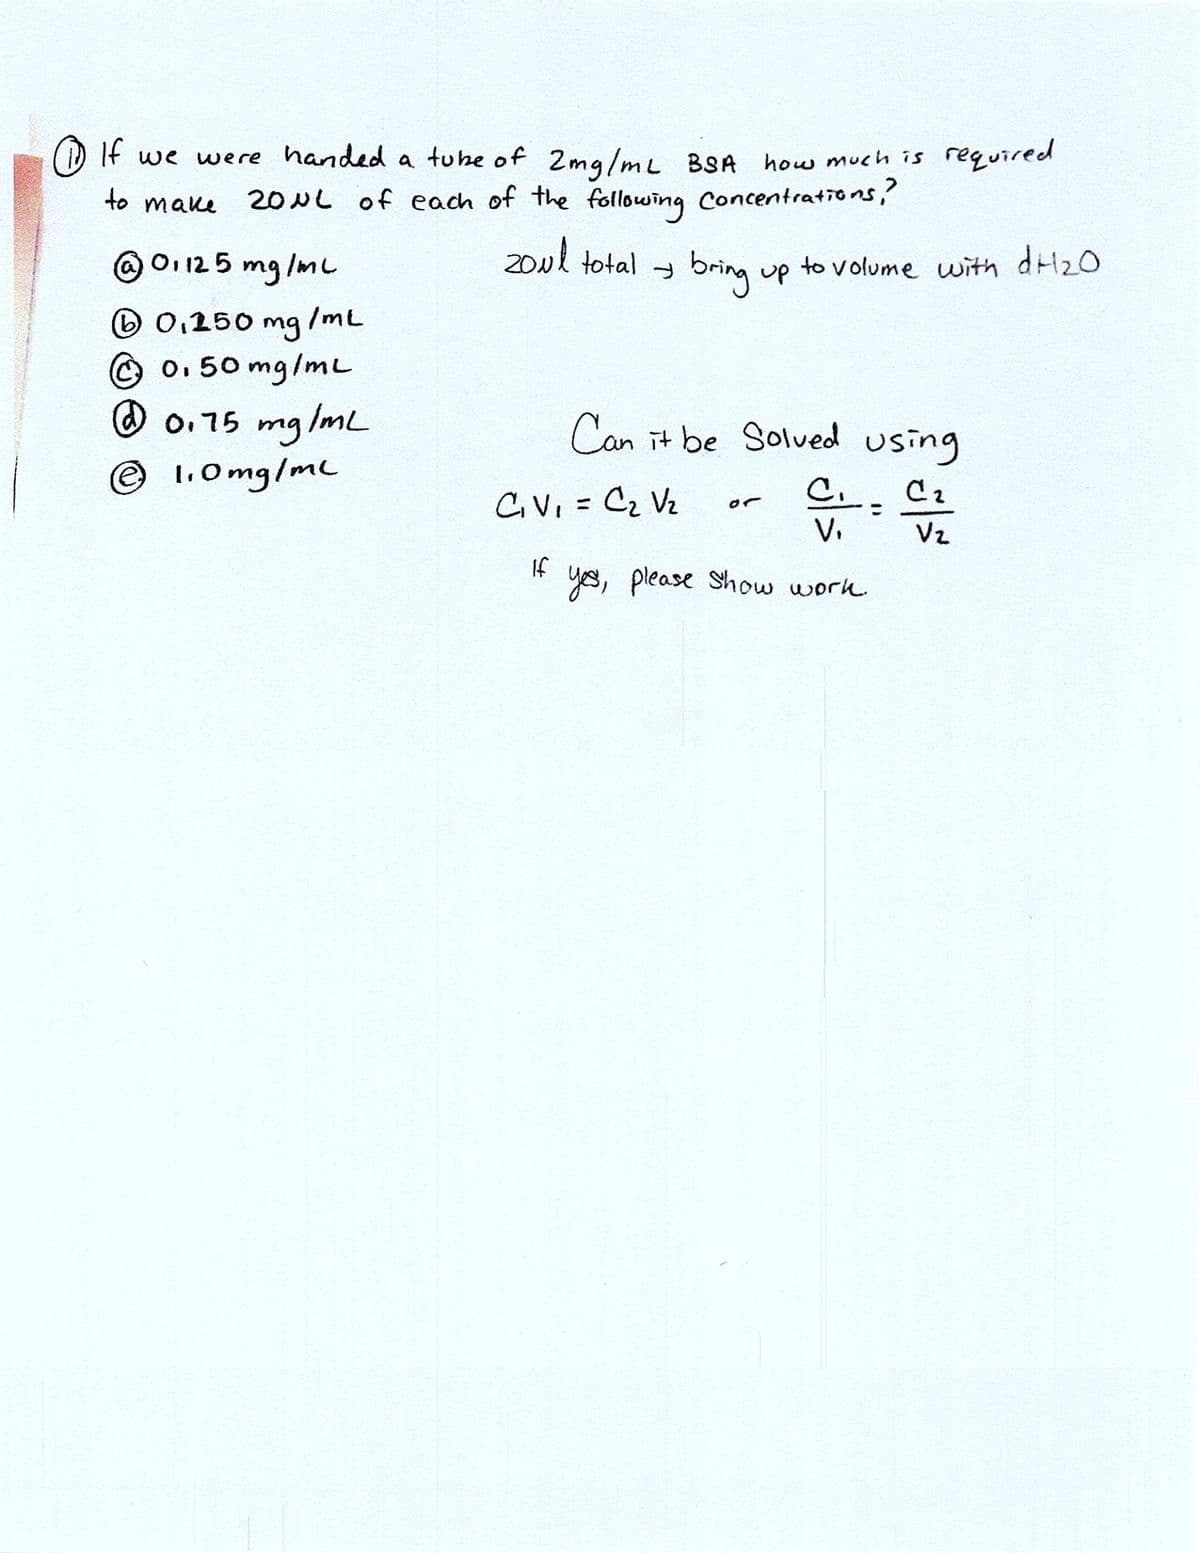 ① If we were handed a tube of 2mg/mL BSA how much is required
to make 20 µL of each of the following concentrations?
ⓐ 0.125 mg/mL
20µl total → bring up to volume with dH2O
ⓑ 0.250 mg/mL
ⓒ 0.50 mg/mL
ⓓ 0.75 mg/mL
ⓔ 1.0 mg/mL
Can it be Solved using
C1V1 = C2V2 or C1/V1 = C2/V2
If yes, please show work.